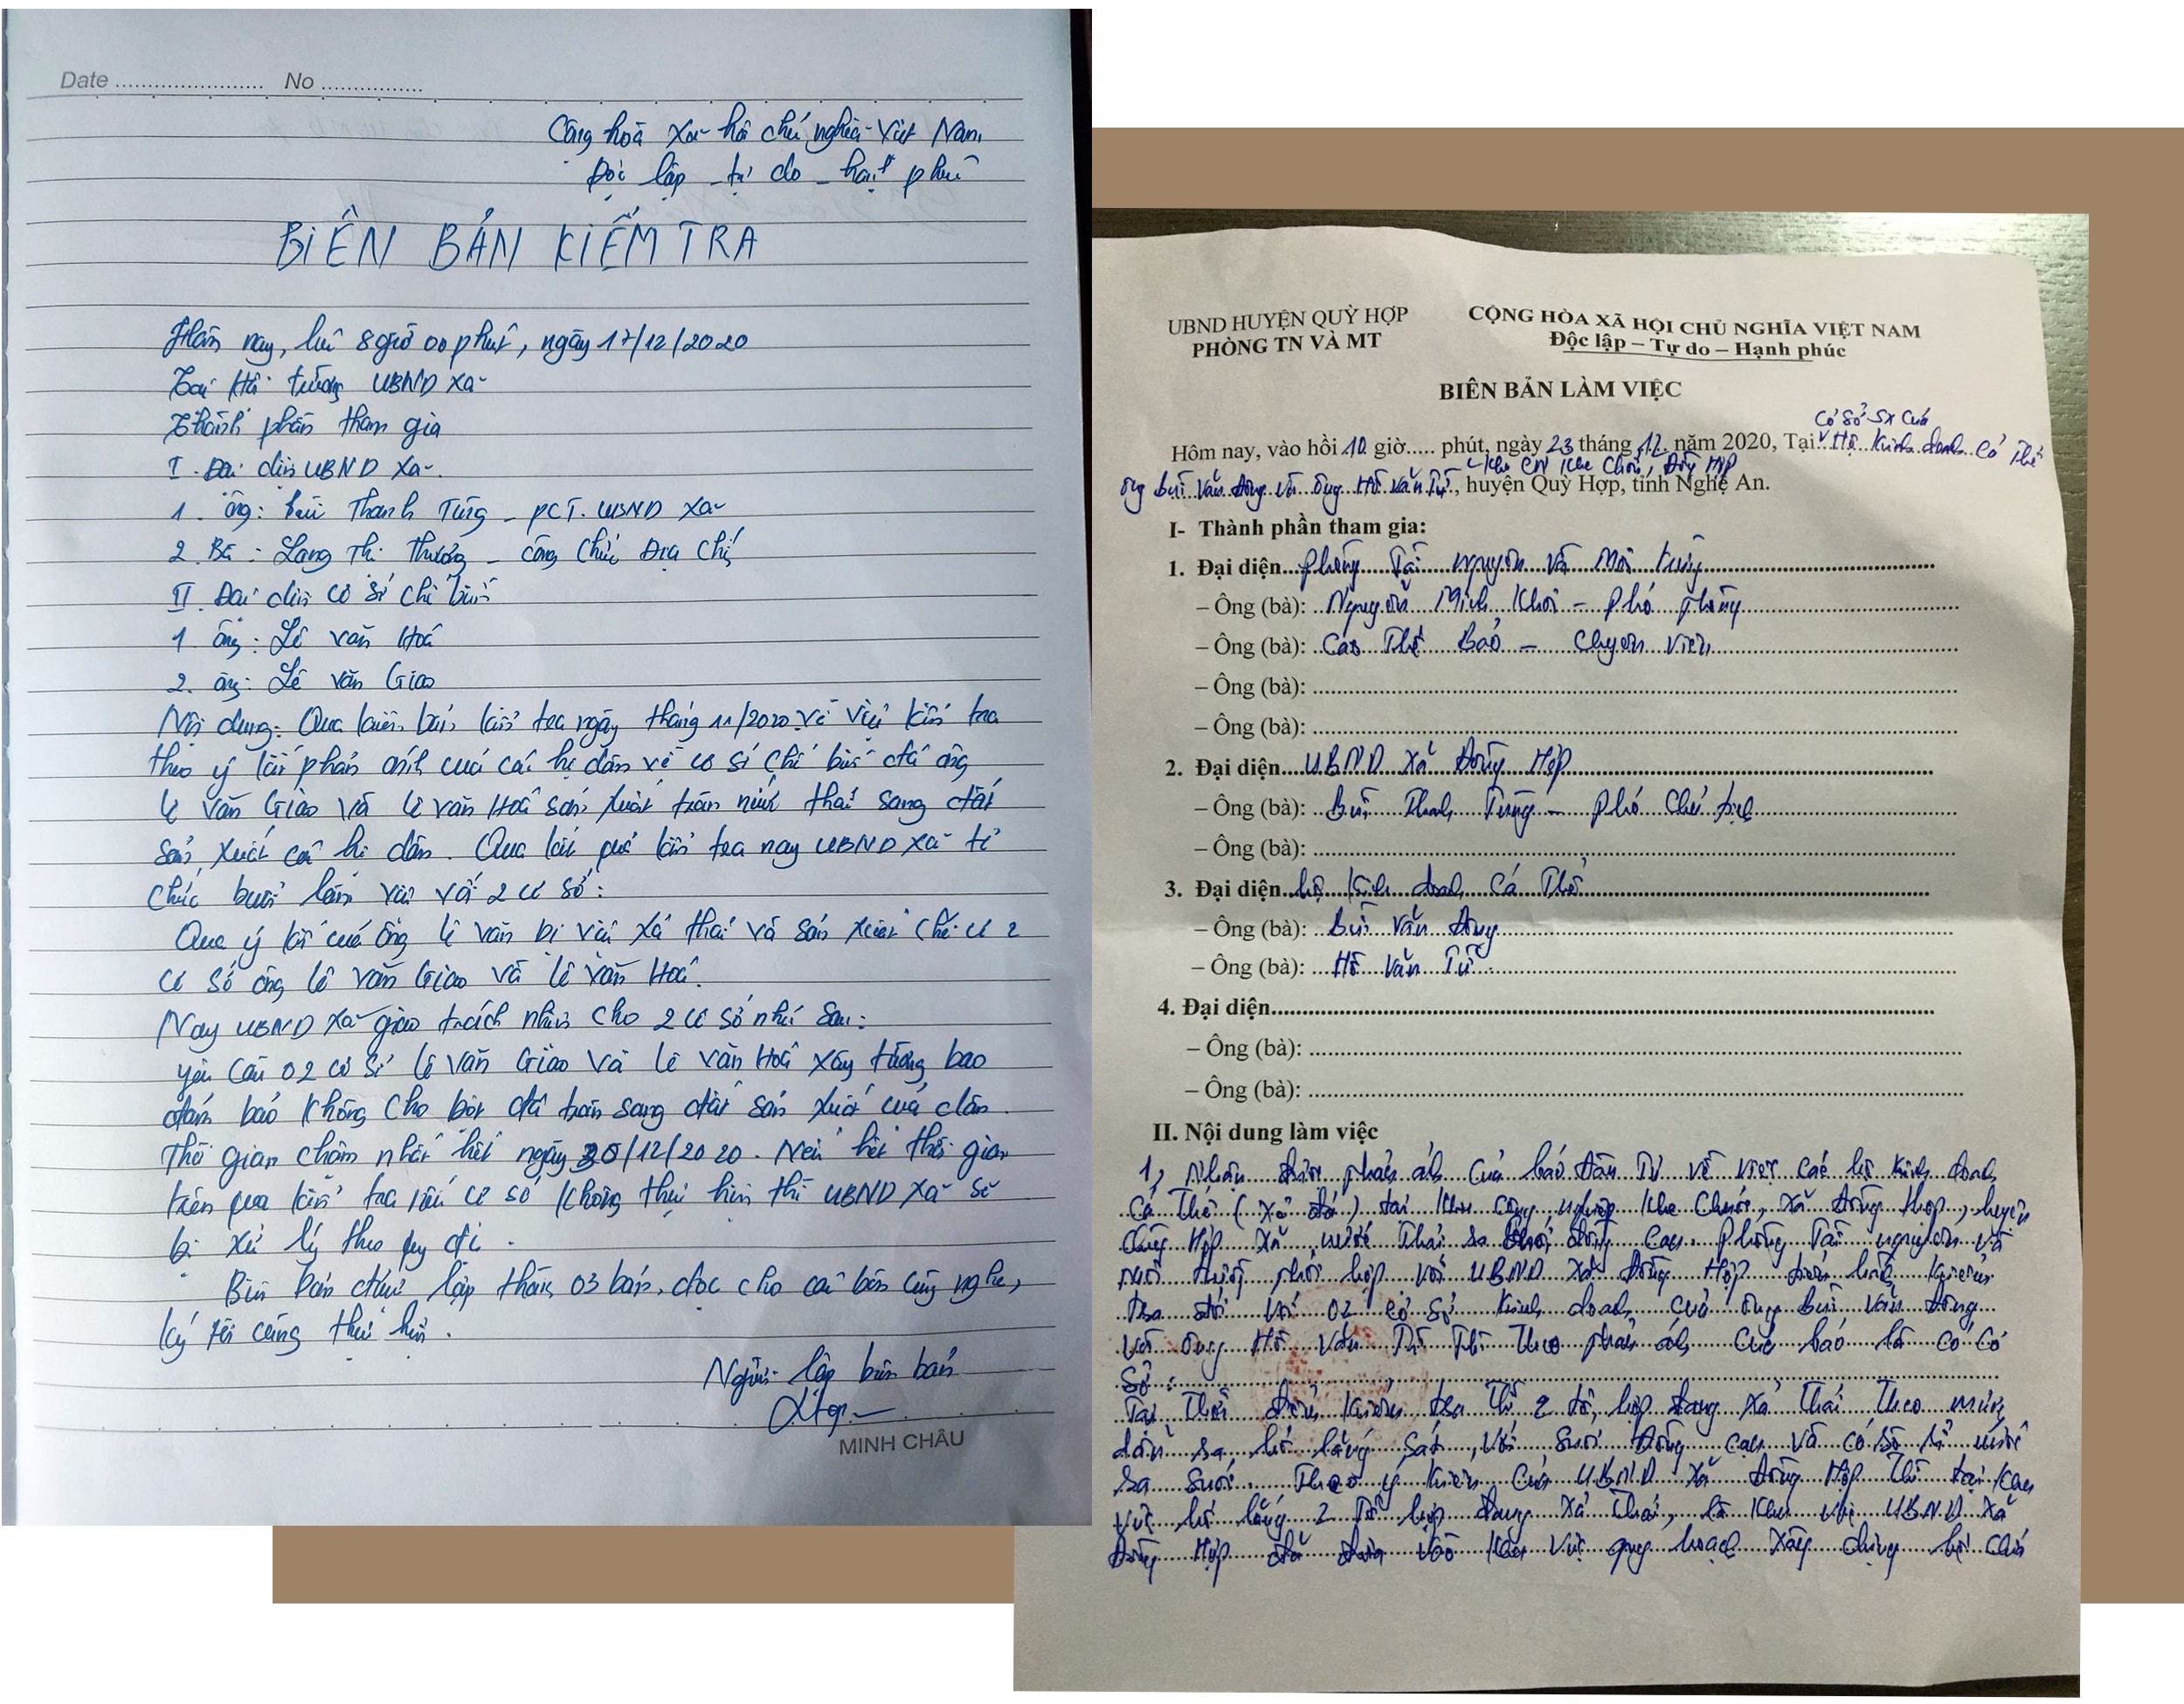 Date ........................ No .................
Cộng hoà xã hội chủ nghĩa Việt Nam
Độc lập - tự do - hạnh phúc
BIÊN BẢN KIỂM TRA
Hôm nay, lúc 8 giờ 00 phút, ngày 17/12/2020
Tại Hội trường UBND xã
Thành phần tham gia
I. Đại diện UBND xã.
1. ông: Bùi Thanh Tùng - PCT. UBND xã
2. Bà: Lang Thị Thương - công chức Địa chính
II. Đại diện cơ sở chế biến
1. ông: Lê Văn Hoá
2. ông: Lê Văn Giao
Nội dung: Qua biên bản kiểm tra ngày tháng 11/2020 về việc kiểm tra
theo ý kiến phản ánh của các hộ dân về cơ sở chế biến đá ông
Lê Văn Giao và Lê Văn Hoá sản xuất tràn nước thải sang đất
sản xuất của hộ dân. Qua kết quả kiểm tra nay UBND xã tổ
chức buổi làm việc với 2 cơ sở:
Qua ý kiến của ông Lê Văn về việc xả thải và sản xuất chỉ có 2
cơ sở ông Lê Văn Giao và Lê Văn Hoá.
Nay UBND xã giao trách nhiệm cho 2 cơ sở như sau:
yêu cầu 02 cơ sở Lê Văn Giao và Lê Văn Hoá xây tường bao
đảm bảo không cho bột đá tràn sang đất sản xuất của dân.
Thời gian chậm nhất hết ngày 30/12/2020. Nếu hết thời gian
trên qua kiểm tra nếu cơ sở không thực hiện thì UBND xã sẽ
xử lý theo quy định.
Biên bản được lập thành 03 bản, đọc cho các bên cùng nghe,
ký tên cùng thực hiện.
Người lập biên bản
MINH CHÂU
UBND HUYỆN QUỲ HỢP
PHÒNG TN VÀ MT
CỘNG HÒA XÃ HỘI CHỦ NGHĨA VIỆT NAM
Độc lập – Tự do – Hạnh phúc
BIÊN BẢN LÀM VIỆC
Cơ sở SX của
Hôm nay, vào hồi 10 giờ..... phút, ngày 23 tháng 12 năm 2020, Tại Hộ Kinh doanh Cá Thể
- Khu CN Khe Chuối, Đồng Hợp
ông Bùi Văn Đông và ông Hồ Văn Từ, huyện Quỳ Hợp, tỉnh Nghệ An.
I- Thành phần tham gia:
1. Đại diện Phòng Tài nguyên và Môi trường
– Ông (bà): Nguyễn Minh Khôi - Phó phòng
– Ông (bà): Cao Thế Bảo - Chuyên viên
– Ông (bà):
– Ông (bà):
2. Đại diện UBND Xã Đồng Hợp
– Ông (bà): Bùi Thanh Tùng - Phó Chủ tịch
– Ông (bà):
3. Đại diện hộ Kinh doanh Cá Thể
– Ông (bà): Bùi Văn Đông
– Ông (bà): Hồ Văn Từ
4. Đại diện
– Ông (bà):
– Ông (bà):
II. Nội dung làm việc
1, Nhận được phản ánh của báo Dân Tự về việc các hộ Kinh doanh
Cá Thể (Xẻ đá) tại Khu Công nghiệp Khe Chuối, Xã Đồng Hợp, huyện
Quỳ Hợp Xả nước Thải ra suối Đồng Cạn. Phòng Tài nguyên và
môi trường phối hợp với UBND Xã Đồng Hợp tiến hành Kiểm
tra đối với 02 cơ sở Kinh doanh của ông Bùi Văn Đông
và ông Hồ Văn Từ Thì Theo phản ánh của báo là có cơ
sở:
Tại Thời điểm Kiểm tra Thì 2 tổ hợp đang Xả Thải Theo mương
dẫn ra hồ lắng sát với Suối Đồng Cạn và có rò rỉ nước
ra suối. Theo ý kiến của UBND Xã Đồng Hợp Thì tại Khu
vực hồ lắng 2 Tổ hợp đang Xả Thải, là Khu vực UBND Xã
Đồng Hợp đã đưa vào Khu vực quy hoạch Xây dựng